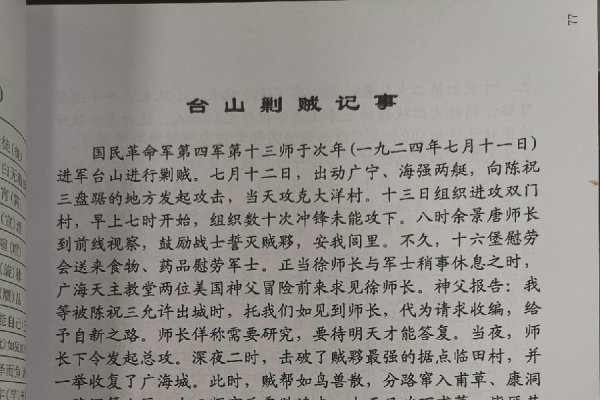 77
台山剿贼记事
国民革命军第四军第十三师于次年(一九二四年七月十一日)
进军台山进行剿贼。七月十二日，出动广宁、海强两艇，向陈祝
三盘踞的地方发起攻击，当天攻克大洋村。十三日组织进攻双门
村，早上七时开始，组织数十次冲锋未能攻下。八时余景唐师长
到前线视察，鼓励战士誓灭贼夥，安我闾里。不久，十六堡慰劳
会送来食物、药品慰劳军士。正当徐师长与军士稍事休息之时，
广海天主教堂两位美国神父冒险前来求见徐师长。神父报告：我
等被陈祝三允许出城时，托我们如见到师长，代为请求收编，给
予自新之路。师长佯称需要研究，要待明天才能答复。当夜，师
长下令发起总攻。深夜二时，击破了贼夥最强的据点临田村，并
一举收复了广海城。此时，贼帮如鸟兽散，分路窜入甫草、康洞